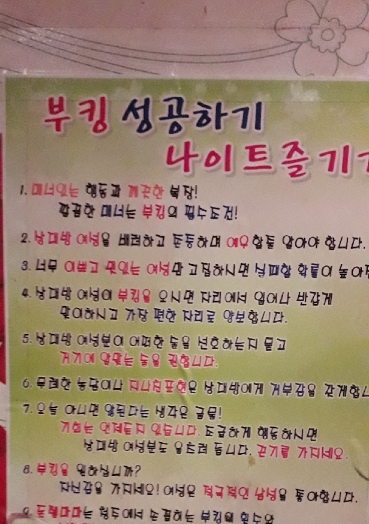 부킹 성공하기
나이트즐기기
1. 매너있는 행동과 깨끗한 복장!
깔끔한 매너는 부킹의 필수조건!
2. 상대방 여성을 배려하고 존중하며 예우할줄 알아야 합니다.
3. 너무 이쁘고 멋있는 여성만 고집하시면 실패할 확률이 높아
4. 상대방 여성이 부킹을 오시면 자리에서 일어나 반갑게
맞이하시고 가장 편한 자리로 양보합니다.
5. 상대방 여성분이 어떠한 술을 선호하는지 묻고
거기에 알맞는 술을 권합니다.
6. 무례한 농담이나 지나친표현은 상대방에게 거부감을 갖게합
7. 오늘 아니면 않된다는 생각은 금물!
기회는 언제든지 있습니다. 조급하게 행동하시면
상대방 여성분도 움츠려 듭니다. 끈기를 가지세요.
8. 부킹을 원하십니까?
자신감을 가지세요! 여성은 적극적인 남성을 좋아합니다.
9. 부킹